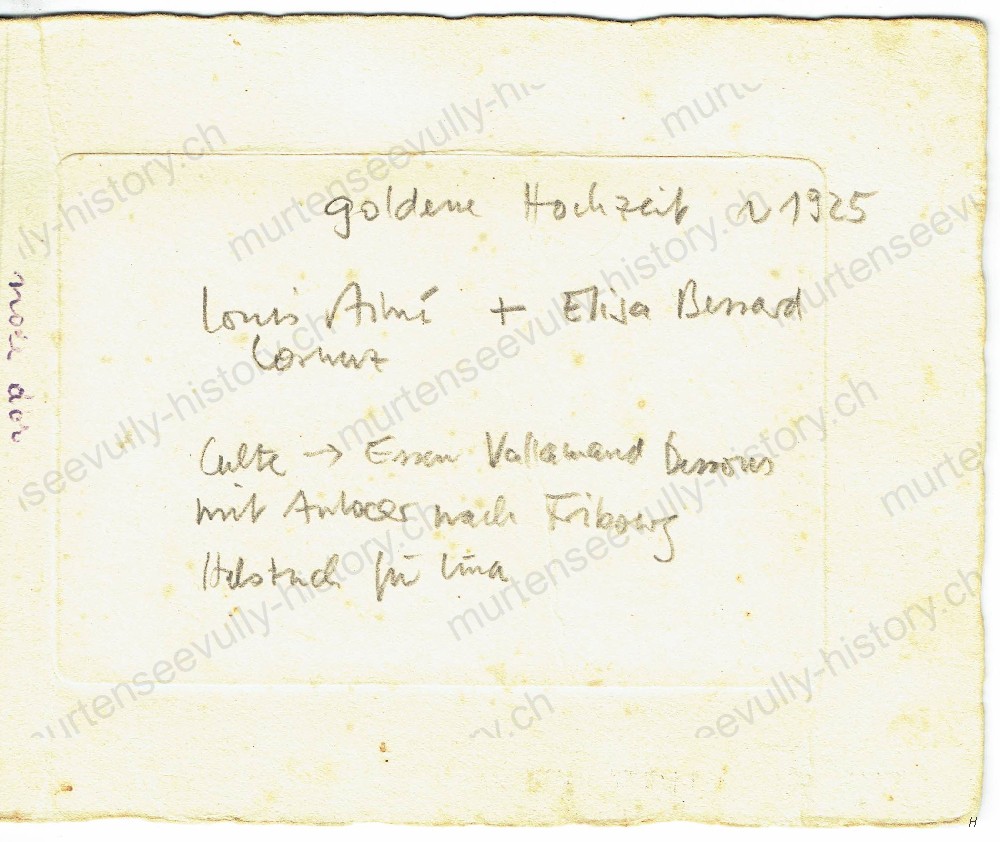 goldene Hochzeit ~ 1925
Louis Aimé + Elisa Bessard
Cornuz
Culte → Essen Vallamand Dessous
mit Autocar nach Fribourg
Halstuch für Lina
noce d'or
murtenseevully-history.ch
H